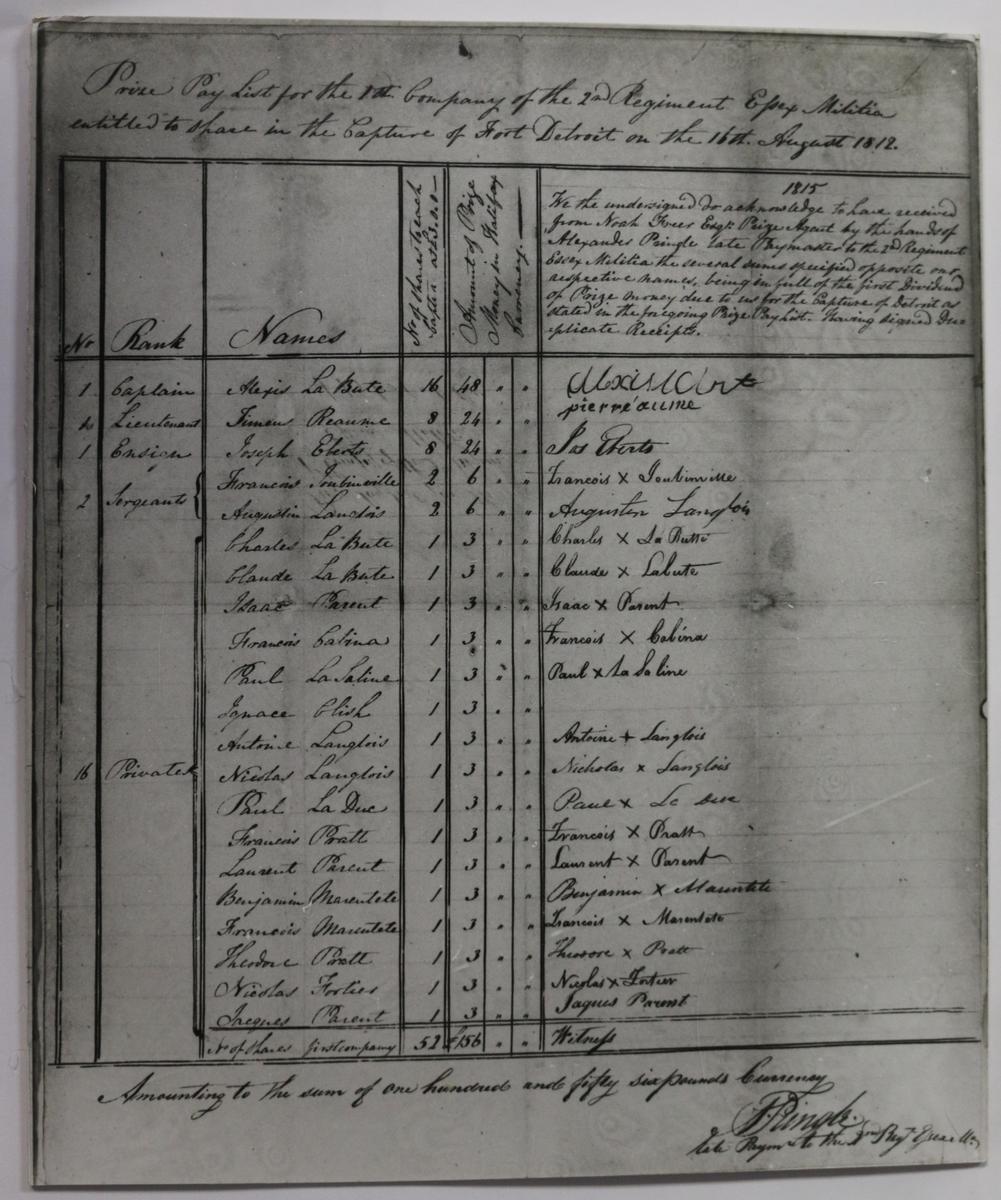 Prize Pay List for the 1st Company of the 2nd Regiment Essex Militia
entitled to share in the Capture of Fort Detroit on the 16th August 1812.
No Rank Names No of Shares to each Amount of Prize Money in Halifax Currency
1815
We the undersigned do acknowledge to have received
from Noah Freer Esqr. Prize Agent by the hands of
Alexander Pringle late Paymaster to the 2nd Regiment
Essex Militia the several sums specified opposite our
respective names, being in full of the first Dividend
of Prize money due to us for the Capture of Detroit as
stated in the foregoing Prize Pay List. Having signed Du-
plicate Receipts.
1 Captain Alexis La Bute 16 48 " "
Lieutenant Reaume 8 24 " " pierre
1 Ensign Joseph Eberts 8 24 " " Jos Eberts
2 Sergeants
Francois Joubinville 2 6 " " Francois X Joubinville
Augustin Langlois 2 6 " " Augustin Langlois
16 Privates
Charles La Bute 1 3 " " Charles X La Butte
Claude La Bute 1 3 " " Claude X Labute
Isaac Parent 1 3 " " Isaac X Parent
Francois Cabina 1 3 " " Francois X Cabina
Paul La Saline 1 3 " " Paul X La Saline
Ignace Clish 1 3 " "
Antoine Langlois 1 3 " " Antoine + Langlois
Nicolas Langlois 1 3 " " Nicholas X Langlois
Paul La Duc 1 3 " " Paul X Le Duc
Francois Pratt 1 3 " " Francois X Pratt
Laurent Parent 1 3 " " Laurent X Parent
Benjamin Marentete 1 3 " " Benjamin X Marentete
Francois Marentete 1 3 " " Francois X Marentete
Theodore Pratt 1 3 " " Theodore X Pratt
Nicolas Fortier 1 3 " " Nicolas X Fortier
Jacques Parent 1 3 " " Jaques Parent
No of Shares first company 52 £156 " " Witness
Amounting to the sum of one hundred and fifty six pounds Currency
A. Pringle.
late Paymr to the 2nd Regt Essex Ma